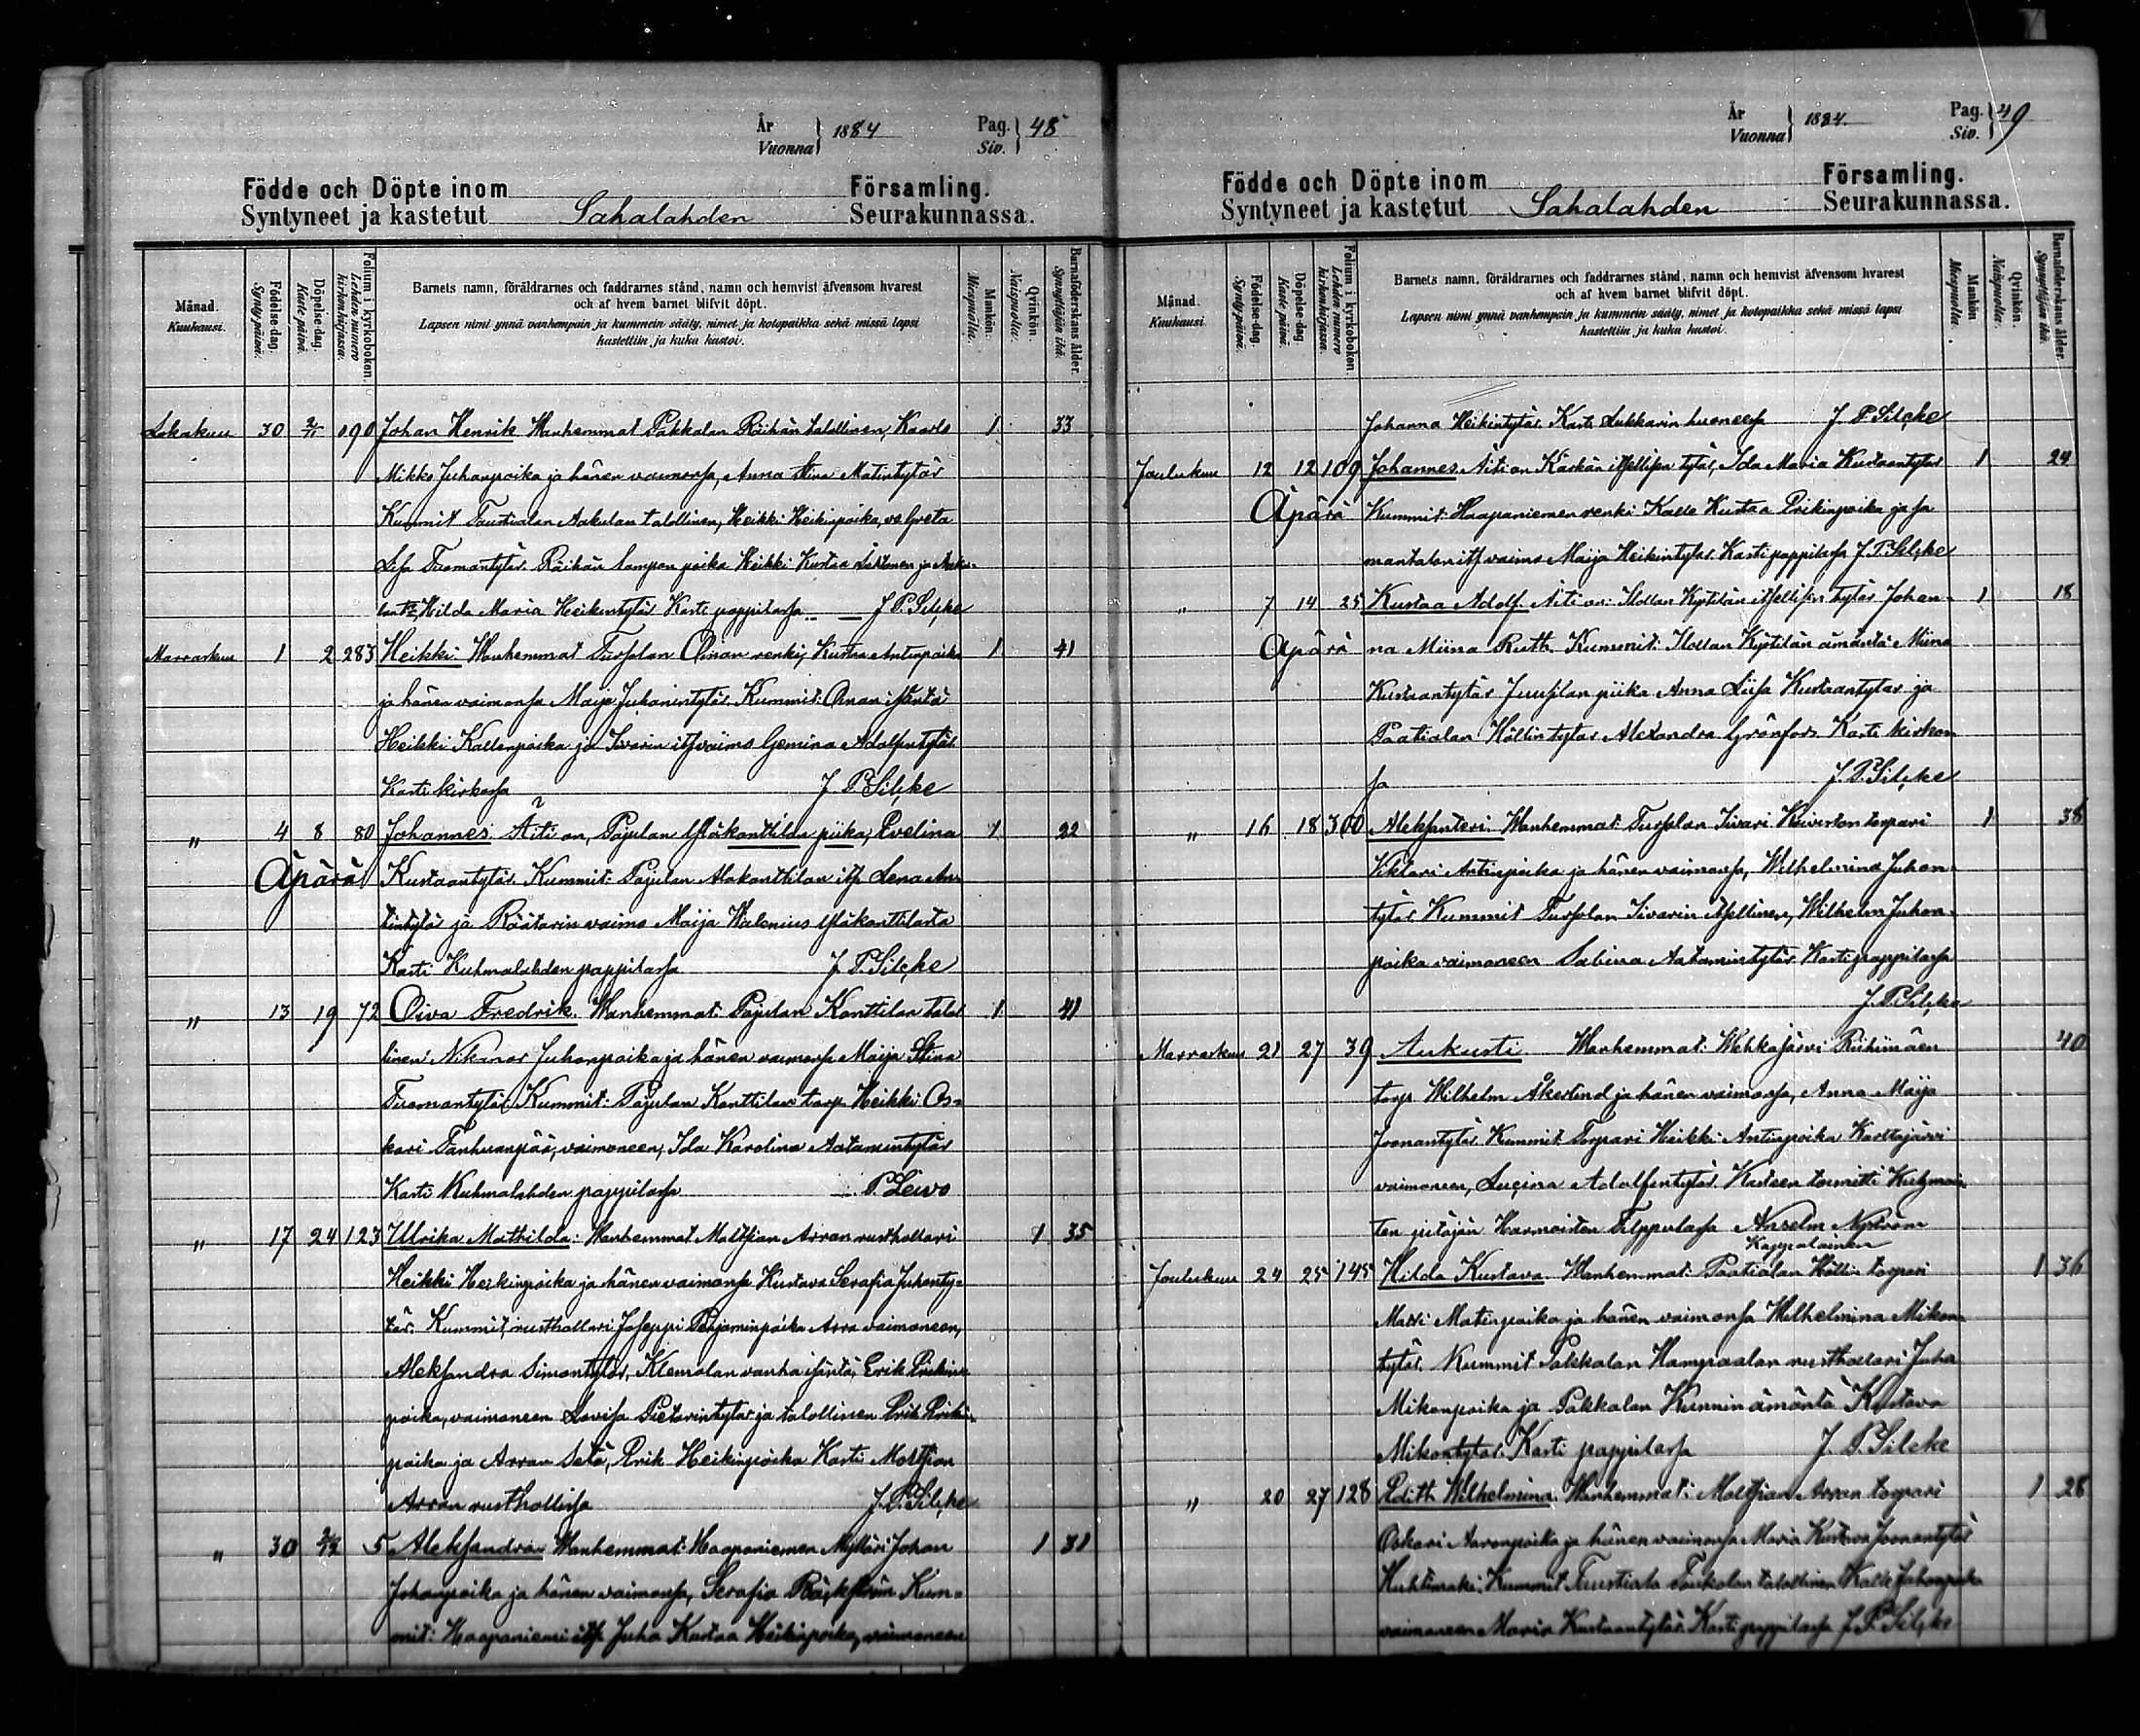 År
Vuonna } 1884
Pag.
Siv. } 48
Födde och Döpte inom Församling.
Syntyneet ja kastetut Sahalahden Seurakunnassa.
Månad.
Kuukausi.
Födelse-dag.
Synty-päivä.
Döpelse-dag.
Kaste päivä.
Folium i kyrkoboken.
Lehden numero kirkonkirjassa.
Barnets namn, föräldrarnes och faddrarnes stånd, namn och hemvist äfvensom hvarest
och af hvem barnet blifvit döpt.
Lapsen nimi ynnä vanhempain ja kummein sääty, nimet ja kotopaikka sekä missä lapsi
kastettiin ja kuka kastoi.
Mankön.
Miespuolta.
Qvinkön.
Naispuolta.
Barnaföderskans ålder.
Synnyttäjän ikä.
Lokakuu 30 2/11 190 Johan Henrik Wanhemmat Pakkalan Räihän talollinen, Kaarlo 1 33
Mikko Juhanpoika ja hänen vaimonsa, Anna Stina Matintytär
Kummit Taustialan Aakulan talollinen, Heikki Heikinpoika, vo Greta
Lisa Tuomantytär Räihän Sampon poika Heikki Kustaa Lehtonen ja Aaku-
lan Hilda Maria Heikintytär Kasti pappilassa J P Silcke
Marraskuu 1 2 283 Heikki: Wanhemmat Tursolan Oinan renki, Kustaa Antinpoika 1 41
ja hänen vaimonsa Maija Juhanintytär. Kummit: Oinan isäntä
Heikki Kallenpoika ja Iivarin its vaimo Gemina Adolfintytär
Kasti kirkossa J P Silcke
" 4 8 80 Johannes Äiti on, Pajulan Yläkonttilan piika, Evelina 1 22
Äpärä Kustaantytär. Kummit: Pajulan Alakonttilan its. Lena An-
tintytär ja Räätärin vaimo Maija Walenius Yläkonttilasta
Kasti Kuhmalahden pappilassa J P Silcke
" 13 19 72 Oiva Fredrik. Wanhemmat: Pajulan Konttilan talol- 1 41
linen Nikanor Juhanpoika ja hänen vaimonsa Maija Stina
Tuomantytär, Kummit: Pajulan Konttilan torp Heikki Os-
kari Tanhuanpää, vaimoneen, Ida Karolina Aatamintytär
Kasti Kuhmalahden pappilassa P Lewo
" 17 24 123 Ulrika Mathilda: Wanhemmat Moltsian Arran rusthollari 1 35
Heikki Heikinpoika ja hänen vaimonsa Kustava Serafia Juhanty-
tär. Kummit, rusthollari Joseppi Penjaminpoika Arra vaimoneen,
Aleksandra Simontytär, Klemolan vanha isäntä, Erik Erikin-
poika, vaimoneen Lovisa Pietarintytär ja talollinen Erik Erikin-
poika ja Arran setä, Erik Heikinpoika Kasti Moltsian
Arran rusthollissa J. P. Silcke
" 30 2/12 5 Aleksandra Wanhemmat: Haapaniemen Mylläri Johan 1 31
Johanpoika ja hänen vaimonsa, Serafia Bäckström Kum-
mit: Haapaniemi its. Juha Kustaa Heikinpoika, vaimoneen
År
Vuonna } 1884.
Pag.
Siv. } 49
Födde och Döpte inom Församling.
Syntyneet ja kastetut Sahalahden Seurakunnassa.
Månad.
Kuukausi.
Födelse-dag.
Synty-päivä.
Döpelse-dag.
Kaste päivä.
Folium i kyrkoboken.
Lehden numero kirkonkirjassa.
Barnets namn, föräldrarnes och faddrarnes stånd, namn och hemvist äfvensom hvarest
och af hvem barnet blifvit döpt.
Lapsen nimi ynnä vanhempain ja kummein sääty, nimet ja kotopaikka sekä missä lapsi
kastettiin ja kuka kastoi.
Mankön
Miespuolta.
Qvinkön.
Naispuolta.
Barnaföderskans ålder.
Synnyttäjän ikä.
Johanna Heikintytär Kasti Lukkarin huoneessa J. P. Silcke
Joulukuu 12 12 109 Johannes Äiti on Käskän itsellisen tytär, Ida Maria Kustaantytär 1 24
Äpärä Kummit: Haapaniemen renki Kalle Kustaa Erikinpoika ja sa
mantalon its vaimo Maija Heikintytär. Kasti pappilassa J. P. Silcke
" 7 14 25 Kustaa Adolf. Äiti on: Isollan Kyötilän itsellisen tytär Johan- 1 18
Äpärä na Miina Ruth. Kummit: Isollan Kyötilän ämäntä Miina
Kustaantytär Juusilan piika Anna Liisa Kustaantytär ja
Paatialan Höllin tytär Alexandra Grönfors Kasti kirkos-
sa J. P. Silcke
" 16 18 300 Aleksanteri. Wanhemmat: Tursolan Iivari Keiverton torpari 1 38
Viktori Antinpoika ja hänen vaimonsa, Wilhelmina Juhan-
tytär Kummit Tursolan Iivarin itsellinen, Wilhelm Juhan-
poika vaimoneen Sabina Aatamintytär Kasti pappilassa
J. P. Silcke
Marraskuu 21 27 39 Aukusti Wanhemmat: Wehkajärvi Riihimäen 40
torp Wilhelm Åkerlind ja hänen vaimonsa, Anna Maija
Joonantytär Kummit Torpari Heikki Antinpoika Karttajärvi
vaimoneen, Lucina Adolfintytär. Kasteen toimitti Kuhmois-
ten pitäjän Harmoisten Filppulassa Anselm Nyström
Kappalainen
Joulukuu 24 25 145 Hilda Kustava. Wanhemmat: Paatialan Höllin torpari 1 36
Matti Matinpoika ja hänen vaimonsa Wilhelmina Mikon-
tytär. Kummit Pakkalan Hampaalan rusthollari Juha
Mikonpoika ja Pakkalan Kunnin ämäntä Kustava
Mikontytär. Kasti pappilassa J. P. Silcke
" 20 27 128 Edith Wilhelmina. Wanhemmat: Moltsian Arran torpari 1 28
Oskari Aaronpoika ja hänen vaimonsa Maria Kustava Joonantytär
Huhtimäki, Kummit Taustiala Toukolan talollinen Kalle Juhanpoika
vaimoneen Maria Kustaantytär. Kasti pappilassa J. P. Silcke